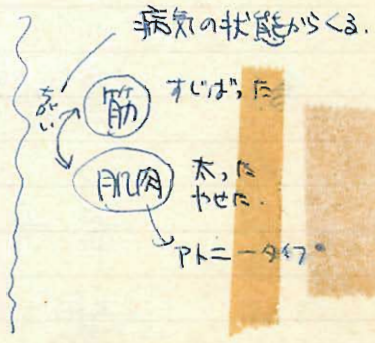 病気の状態からくる.
ちがい
筋 すじばった
肌肉 太った
やせた.
アトニータイプ